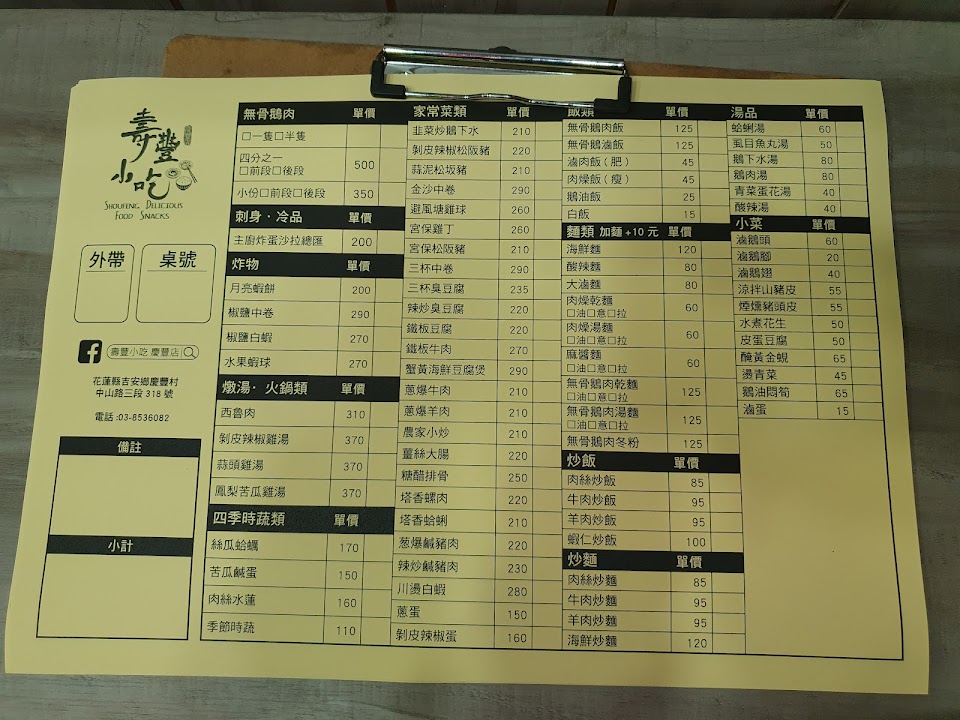 壽豐
小吃
SHOUFENG DELICIOUS
FOOD SNACKS
外帶
桌號
壽豐小吃 慶豐店
花蓮縣吉安鄉慶豐村
中山路三段 318 號
電話:03-8536082
備註
小計
無骨鵝肉 單價
□一隻□半隻
四分之一
□前段□後段 500
小份□前段□後段 350
刺身．冷品 單價
主廚炸蛋沙拉總匯 200
炸物 單價
月亮蝦餅 200
椒鹽中卷 290
椒鹽白蝦 270
水果蝦球 270
燉湯．火鍋類 單價
西魯肉 310
剝皮辣椒雞湯 370
蒜頭雞湯 370
鳳梨苦瓜雞湯 370
四季時蔬類 單價
絲瓜蛤蠣 170
苦瓜鹹蛋 150
肉絲水蓮 160
季節時蔬 110
家常菜類 單價
韭菜炒鵝下水 210
剝皮辣椒松阪豬 220
蒜泥松坂豬 210
金沙中卷 290
避風塘雞球 260
宮保雞丁 260
宮保松阪豬 210
三杯中卷 290
三杯臭豆腐 235
辣炒臭豆腐 220
鐵板豆腐 220
鐵板牛肉 210
蟹黃海鮮豆腐煲 290
蔥爆牛肉 210
蔥爆羊肉 210
農家小炒 210
薑絲大腸 220
糖醋排骨 250
塔香螺肉 220
塔香蛤蜊 210
蔥爆鹹豬肉 220
辣炒鹹豬肉 230
川燙白蝦 280
蔥蛋 150
剝皮辣椒蛋 160
飯類 單價
無骨鵝肉飯 125
無骨鵝滷飯 125
滷肉飯 ( 肥 ) 45
肉燥飯 ( 瘦 ) 45
鵝油飯 25
白飯 15
麵類 加麵 +10 元 單價
海鮮麵 120
酸辣麵 80
大滷麵 80
肉燥乾麵
□油□意□拉 60
肉燥湯麵
□油□意□拉 60
麻醬麵
□油□意□拉 60
無骨鵝肉乾麵
□油□意□拉 125
無骨鵝肉湯麵
□油□意□拉 125
無骨鵝肉冬粉 125
炒飯 單價
肉絲炒飯 85
牛肉炒飯 95
羊肉炒飯 95
蝦仁炒飯 100
炒麵 單價
肉絲炒麵 85
牛肉炒麵 95
羊肉炒麵 95
海鮮炒麵 120
湯品 單價
蛤蜊湯 60
虱目魚丸湯 50
鵝下水湯 80
鵝肉湯 80
青菜蛋花湯 40
酸辣湯 40
小菜 單價
滷鵝頭 60
滷鵝腳 20
滷鵝翅 40
涼拌山豬皮 55
煙燻豬頭皮 55
水煮花生 50
皮蛋豆腐 50
醃黃金蜆 65
燙青菜 45
鵝油悶筍 65
滷蛋 15